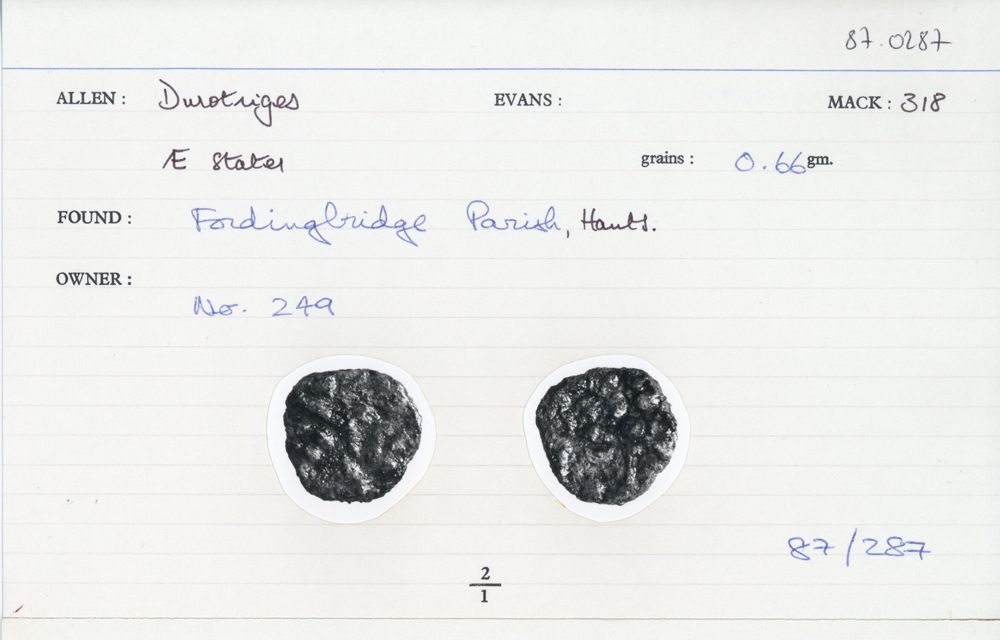 87.0287
ALLEN: Durotriges EVANS: MACK: 318
Æ Stater grains: 0.66 gm.
FOUND: Fordingbridge Parish, Hants.
OWNER:
No. 249
87/287
2
1